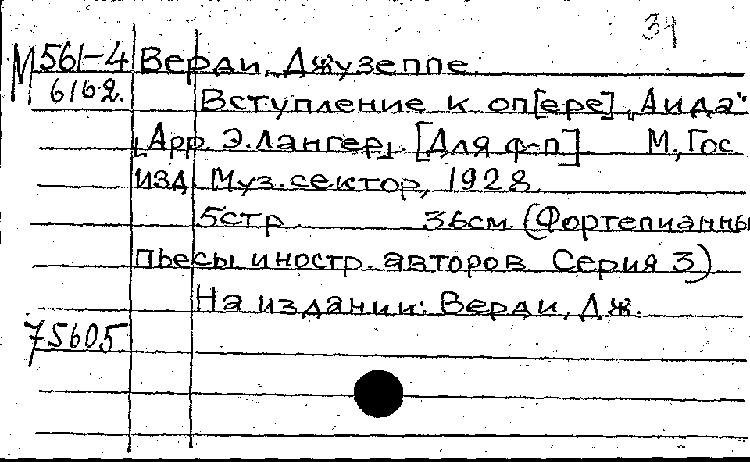 34
М 561-4 Верди, Джузеппе.
6162. Вступление к оп[ере] „Аида"
[Арр. Э. Лангер]. [Для ф-п] М., Гос
изд Муз. сектор, 1928.
5 стр 36 см (Фортепианны
пьесы иностр. авторов Серия 3)
На издании: Верди, Дж.
75605